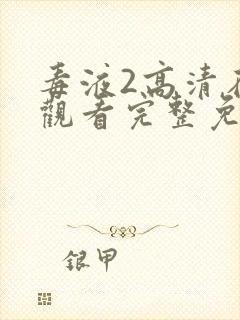 毒液2高清在
觀看完整免
银甲